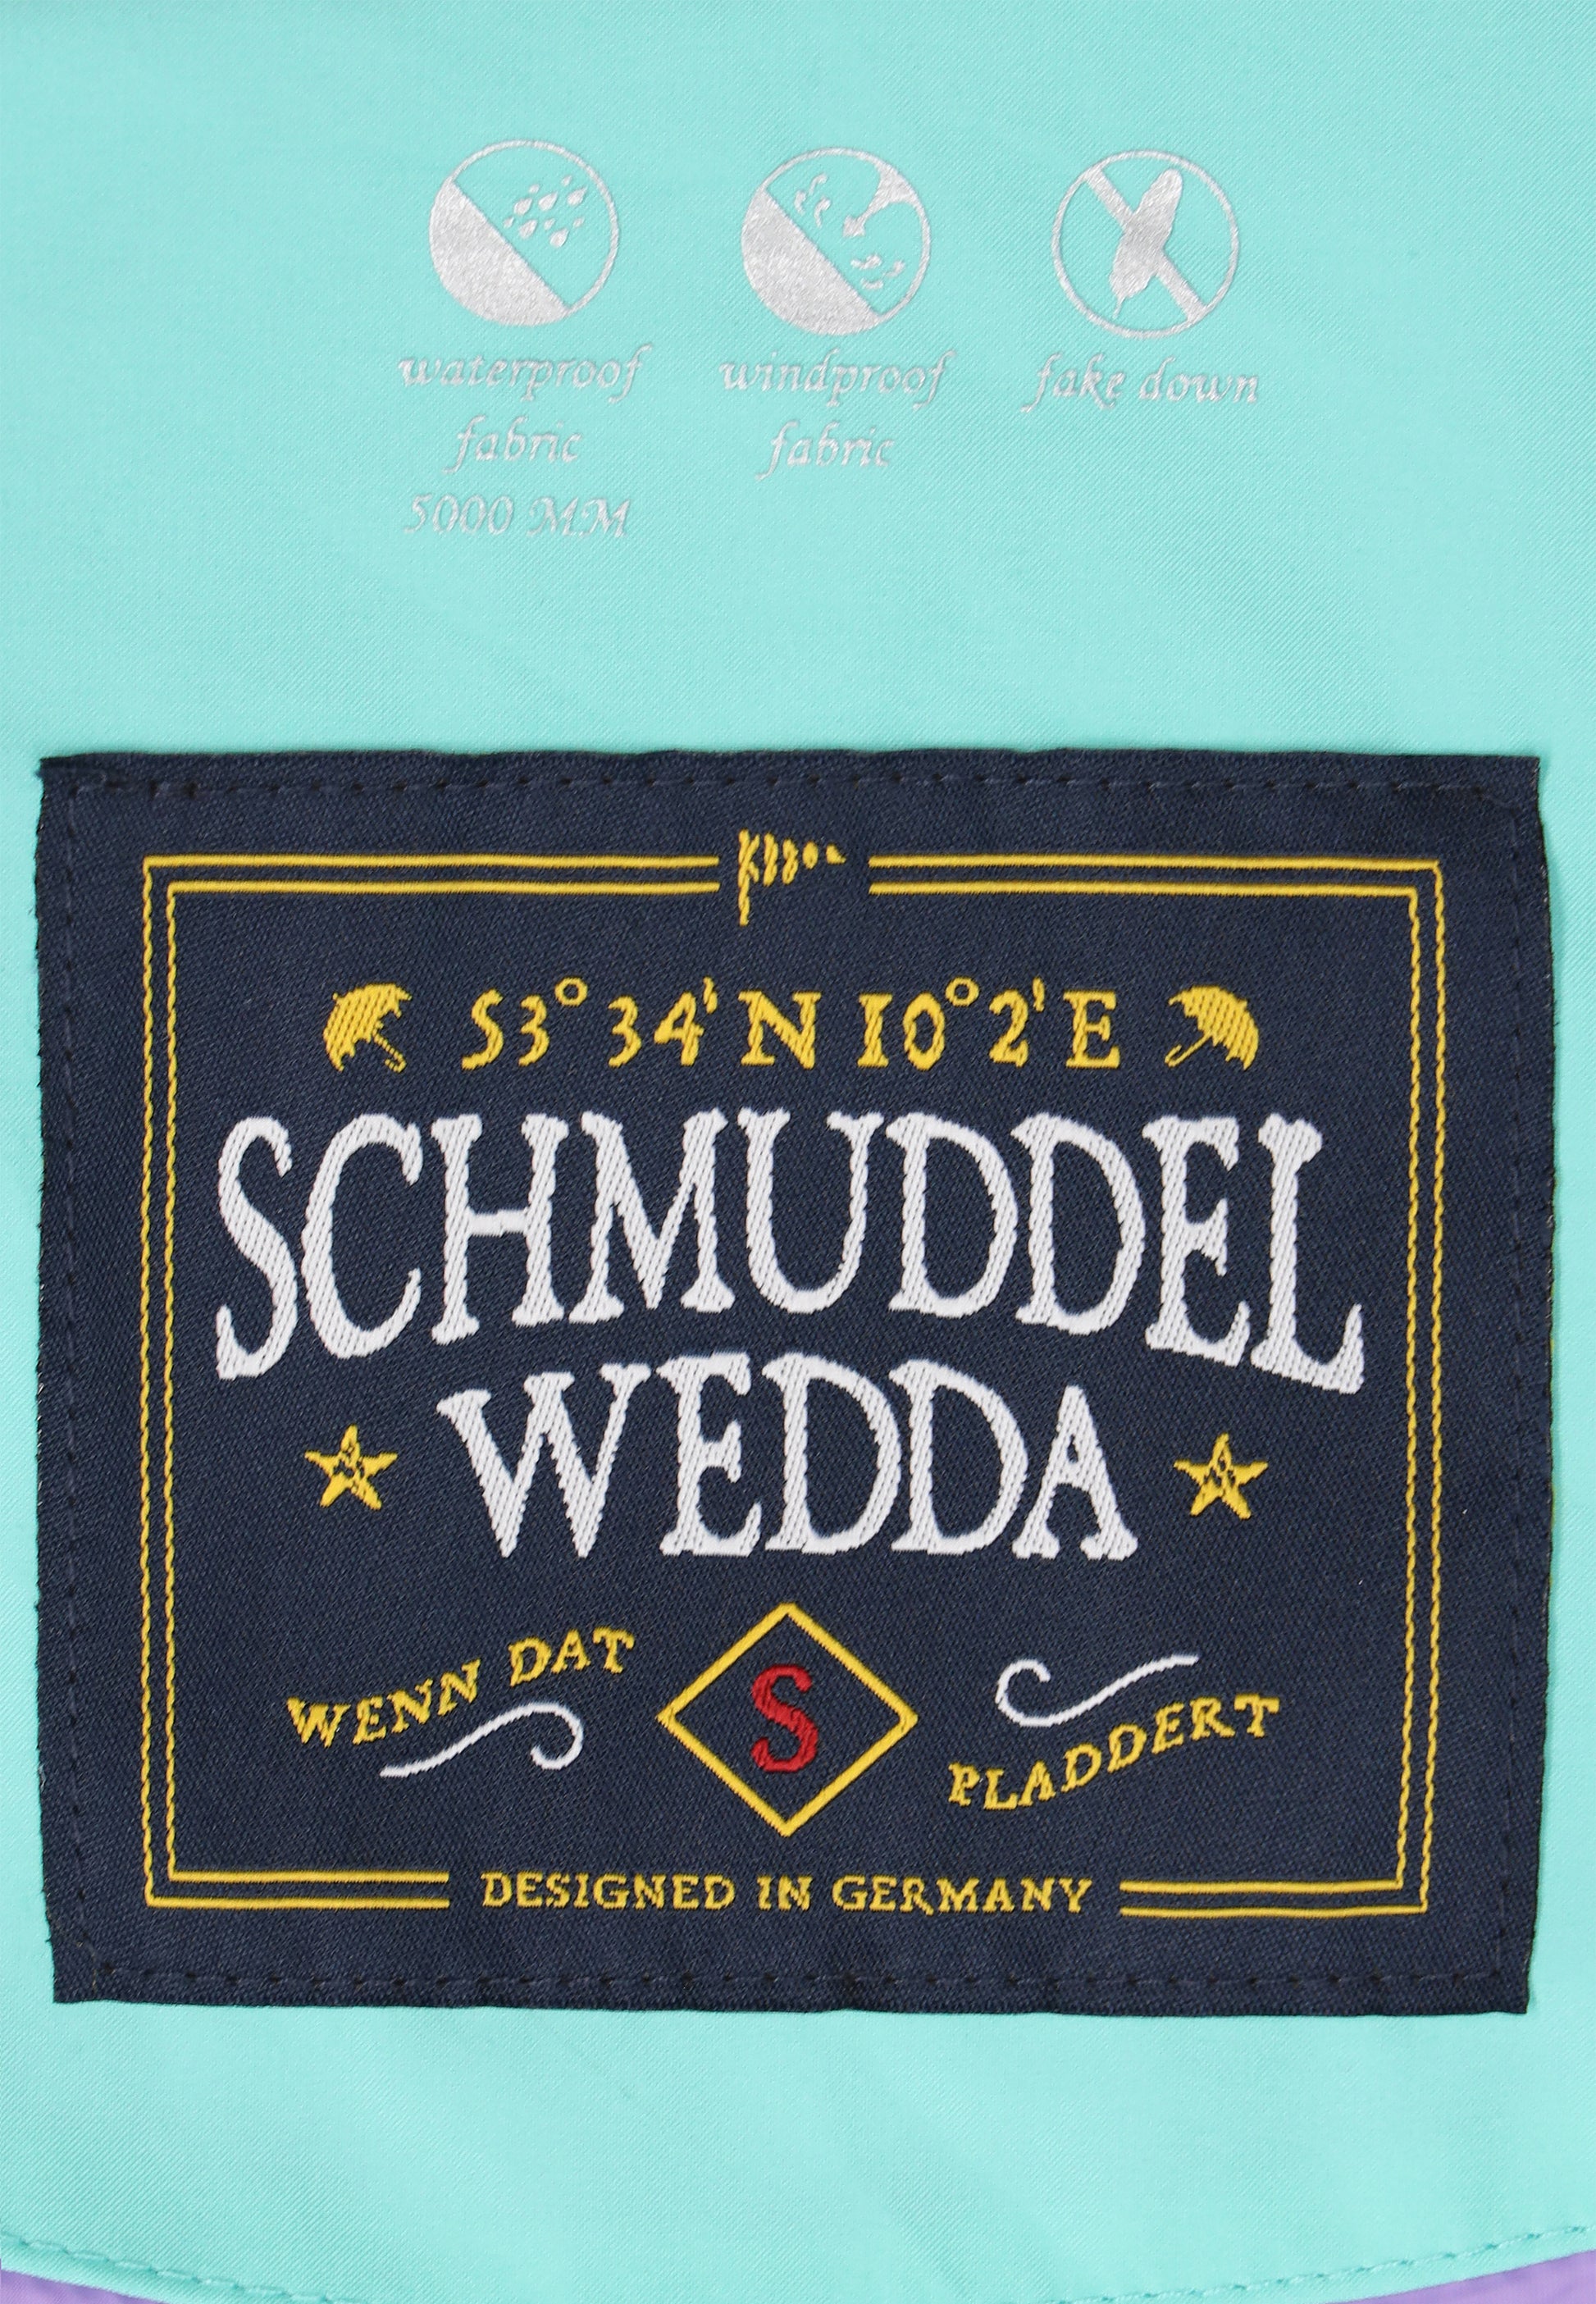 waterproof windproof fake down
fabric fabric
5000 MM
53°34'N 10°2'E
SCHMUDDEL
WEDDA
WENN DAT S PLADDERT
DESIGNED IN GERMANY